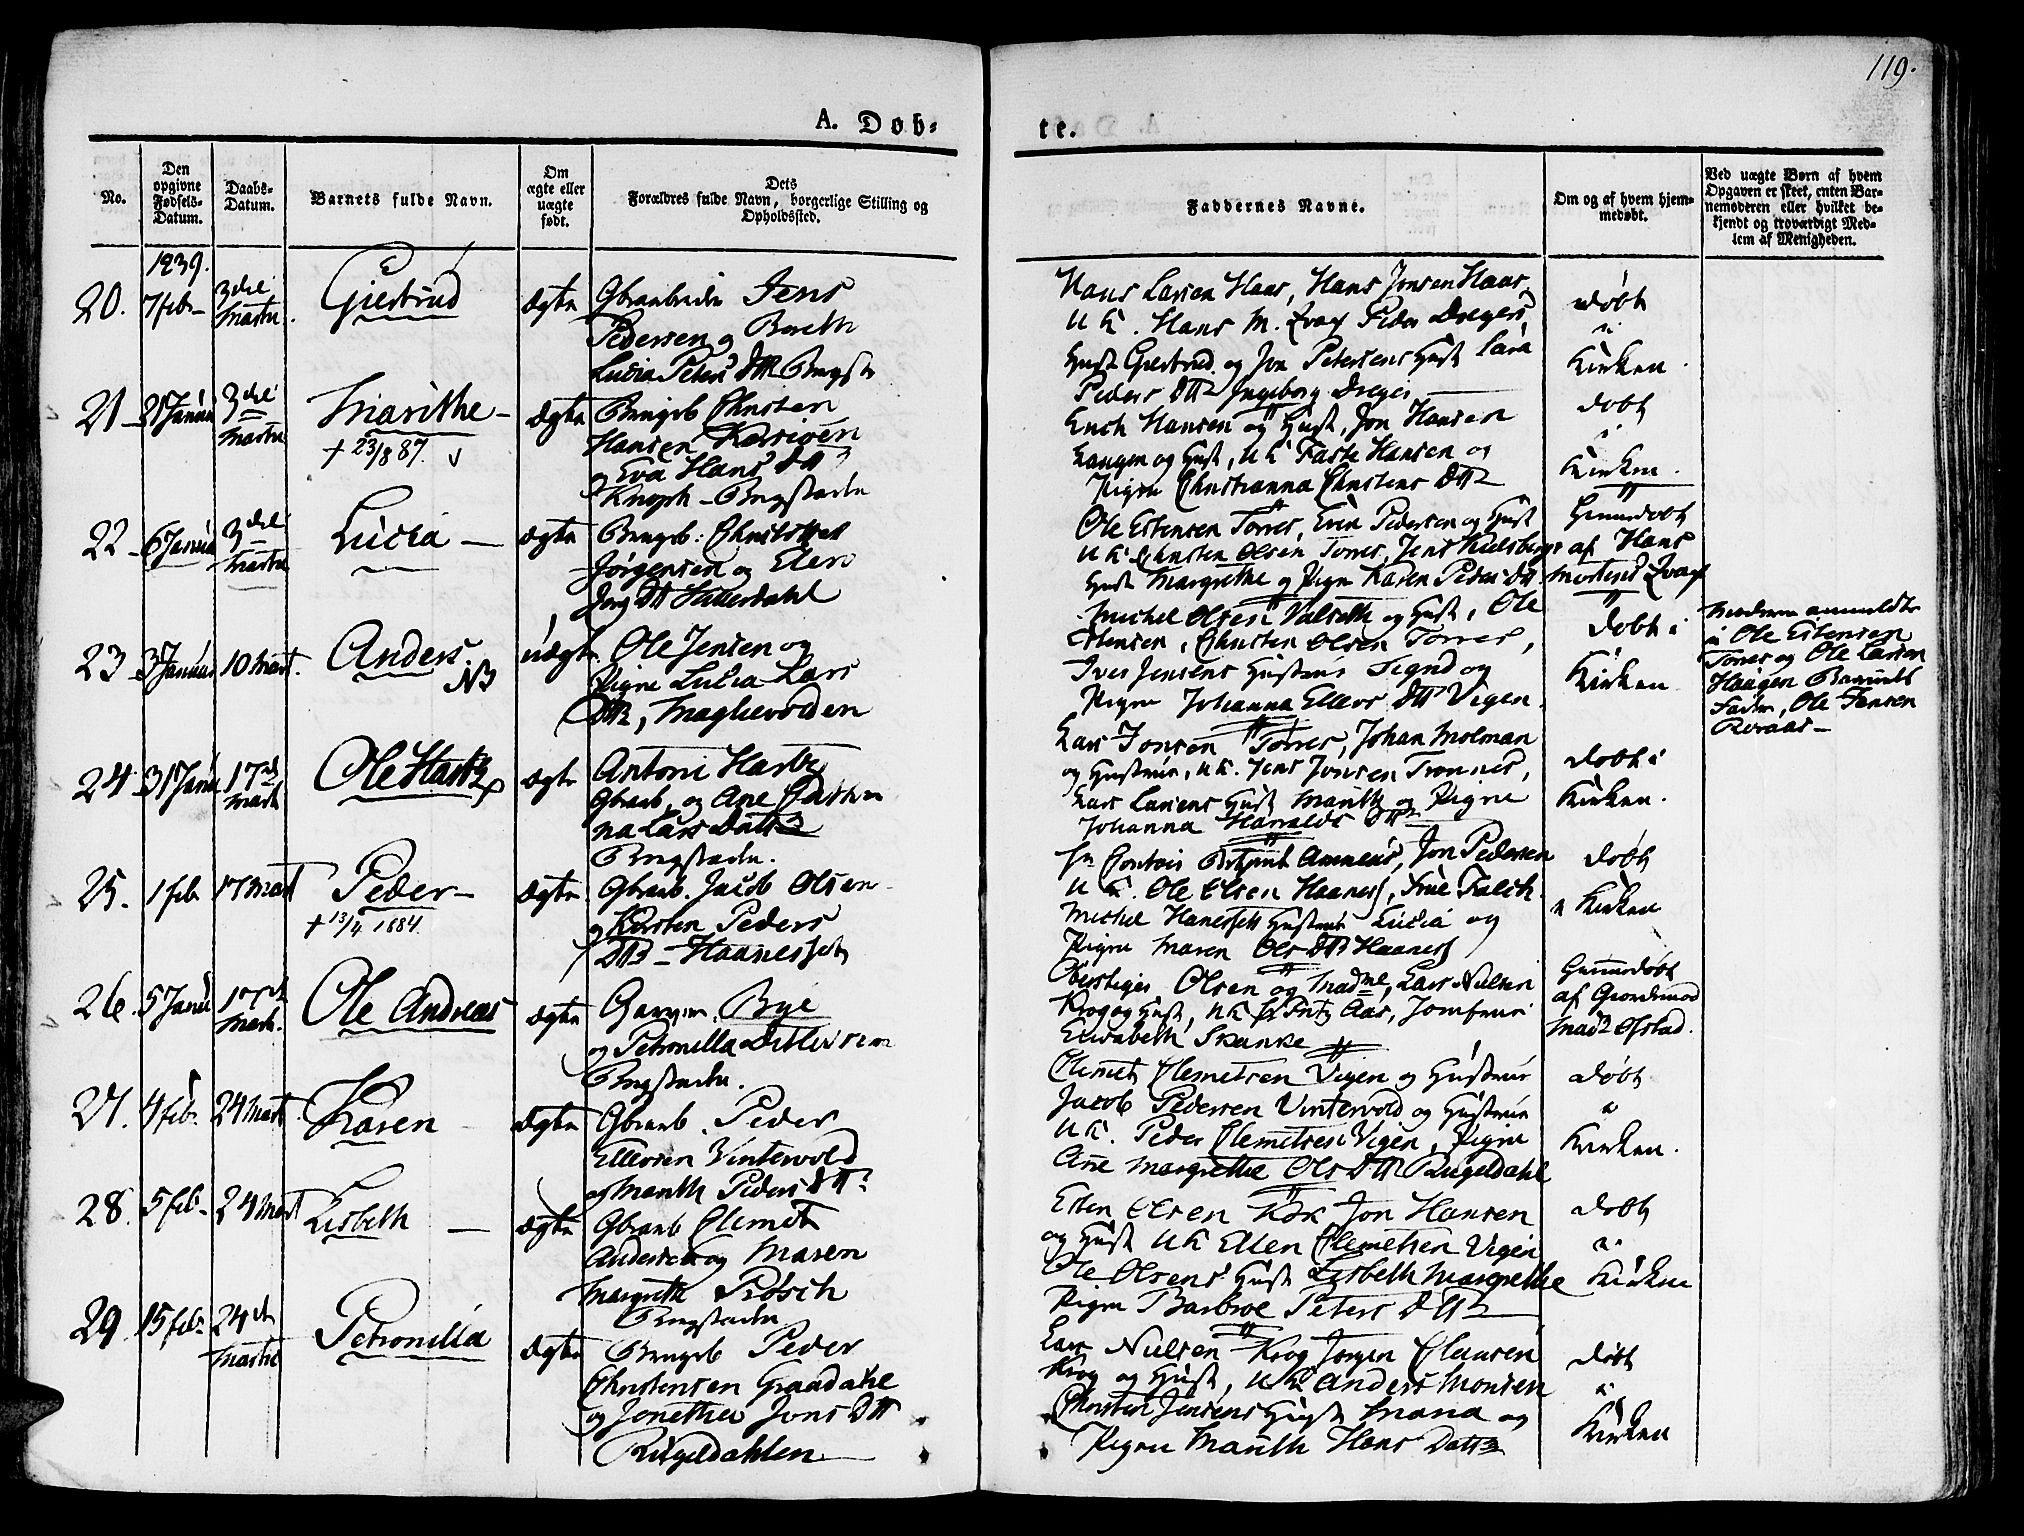 119.
A. Døb-
te.
No.
Den opgivne Fødsels-Datum.
Daabs-Datum.
Barnets fulde Navn.
Om ægte eller uægte født.
Dets Forældres fulde Navn, borgerlige Stilling og Opholdssted.
Faddernes Navne.
Om og af hvem hjemmedøbt.
Ved uægte Børn af hvem Opgaven er skeet, enten Barnemoderen eller hvilket bekjendt og troværdigt Medlem af Menigheden.
1839.
20. 7 feb 3die Martii Giertrud ægte
Jens
Pedersen og Bereth
Lucia Peters Dtt
Hans Larsen Haas, Hans Jonsen Haas,
UK. Hans M. Zvaj Peder Dreyers
Hust Giertrud og Jon Petersens Hust Sara
Peders Dtt Ingeborg Dreyer
døbt
i
Kirken.
21 21 Januar 3die Martii Marithe ægte
+ 23/8 87.
Bergsb Christen
Hansen
og Eva Hans Dtt
Knoph Bergstaden
Erich Hansen og Hust, Jon Hansen
Langen og Hust, UK Faste Hansen og
Pigen Christianna Christens Dtt
døbt
i
Kirken.
22 6 Januar 3die Martii Lucia ægte
Bergsb. Christopher
Jørgensen og Elen
Jons Dtt Hittesdahl
Ole Estensen Torres, Even Pedersen og Hust
UK Christen Olsen Torres, Jens Kielsbergs
Hust Margrethe og Pigen Karen Peders Dtt
Hiemdøbt
af Hans
Mortensen Zvaj
23 3 Januar 10 Mart. Anders
NB
uægte
Ole Jensen og
Pigen Lucia Lars
Dtt, Maglievolden
Michel Olsen Valseth og Hust, Ole
Estensen, Christen Olsen Torres,
Iver Jensens Hustrue Signd og
Pigen Johanna Ellevs Dtt Vigen
døbt i
Kirken
Ole Estensen
Torres og Ole Larsen
Haugen Barnets
Fader, Ole Jensen
Roraas
24 31 Janu 17de Marti Ole Harbz ægte
Antoni Harbz
Gbrarb. og Ane
na Lars Datt
Bergstaden.
Lars Jonsen Torres, Johan Molman
og Hustrue, UK. Jens Jonsen Tronnes,
Lars Larsens Hust Marith og Pigen
Johanna Haralds Dtt
døbt i
Kirken.
25. 1 feb 17 Mart Peder ægte
+ 13/4 1884.
Gbrarb. Jacob Olsen
og Kirsten Peders
Dtt Haanesset
Jon Pedersen
UK. Ole Olsen Haaness, Frue Falch.
Michel Hanessets Hustrue Lucia og
Pigen Maren Ols Dtt Haaness
døbt
i Kirken
26. 5 Janu 17de Mart. Ole Andreas ægte
Garver. Bye
og Petronella Ditlevsen
Bergstaden.
Oberstiger Olsen og Madme, Lars Nielsen
Krog og Hust, UK Hr Fritz Aas, Jomfrue
Elisabeth Skanke
Hiemdøbt
af Giordemod
Mad Ofstad.
27. 4 feb. 24 Mart Karen ægte
Gbrarb. Peder
Ellevsen Vintervold
og Marith Peders Dtt
Clemet Clemetsen Vigen og Hustrue
Jacob Pedersen Vintervold og Hustrue
UK. Peder Clemetsen Vigen, Pigen
Ane Margrethe Ols Dtt Rugeldahl
døbt
i
Kirken.
28. 5 feb. 24 Mart Lisbeth ægte
Gbrarb Clemet
Andersen og Maren
Margreth Prøsch
Bergstaden
Esten Olsen Kok, Jon Hansen
og Hust UK Ellen Clemetsen Vigen
Ole Olsens Hust Lisbeth Margrethe
Pigen Barbroe Peters Dtt
døbt
i
Kirken
29. 15 feb. 24de Martii Petronilla ægte
Bergsb Peder
Christensen Graadahl
og Jonethea Jons Dtt
Rugeldahlen
Lars Nielsen Krog Jørgen Clausen
Krog og Hust, UK Anders Monsen
Christen Jensens Hust Maria og
Pigen Marith Hans Datt
døbt
i
Kirken